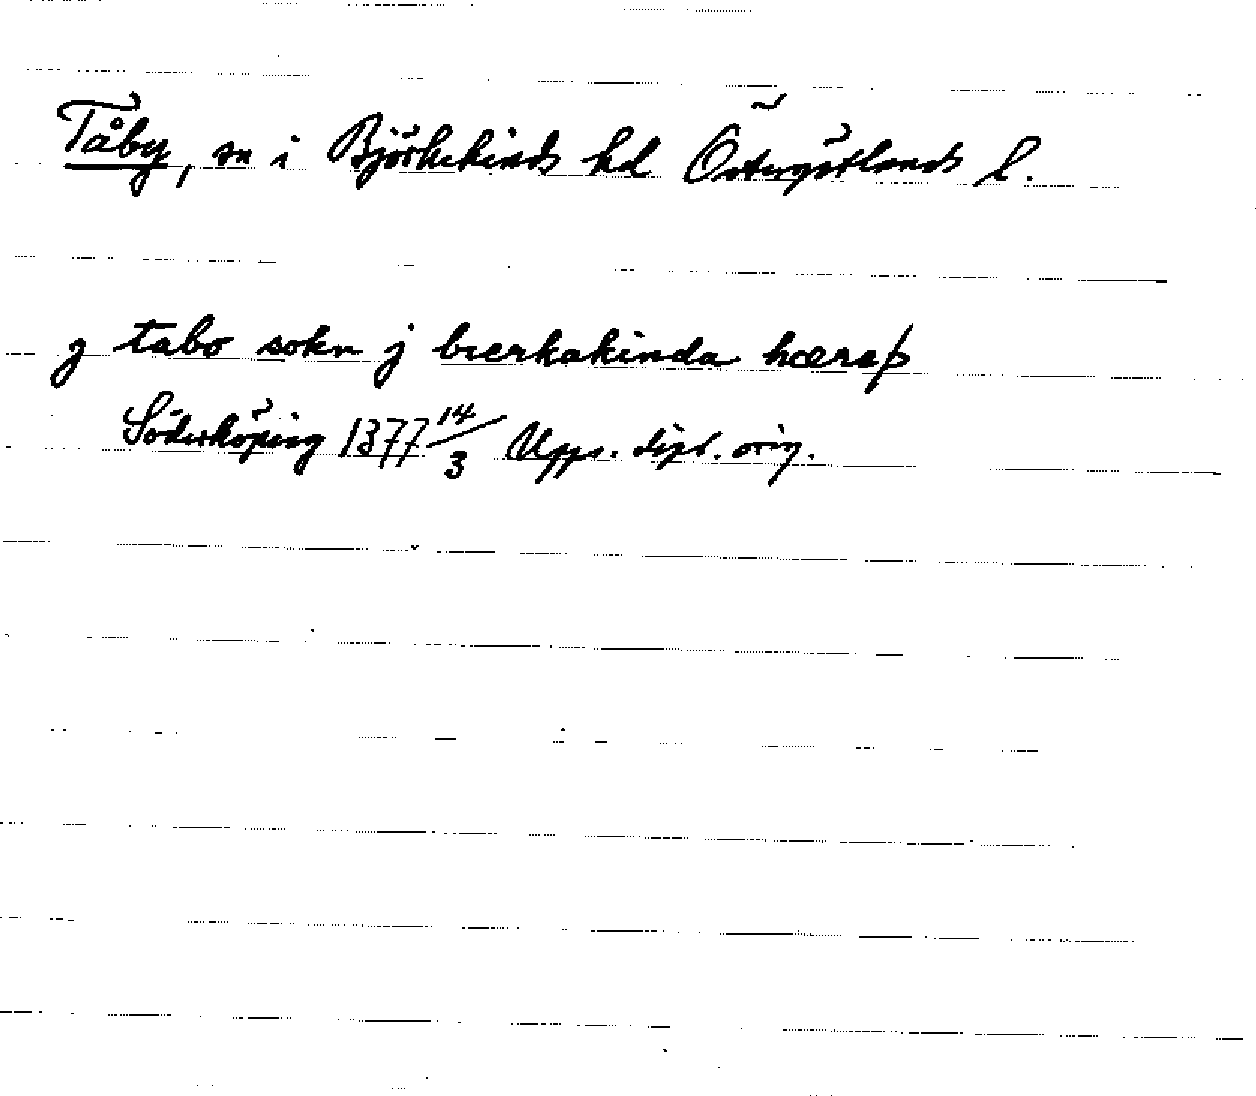 Tåby, sn i Björkekinds hd Östergötlands l.
j tabo sokn j bærkakinda hæraþ
Söderköping 1377 14/3 Upps. dipl. orig.